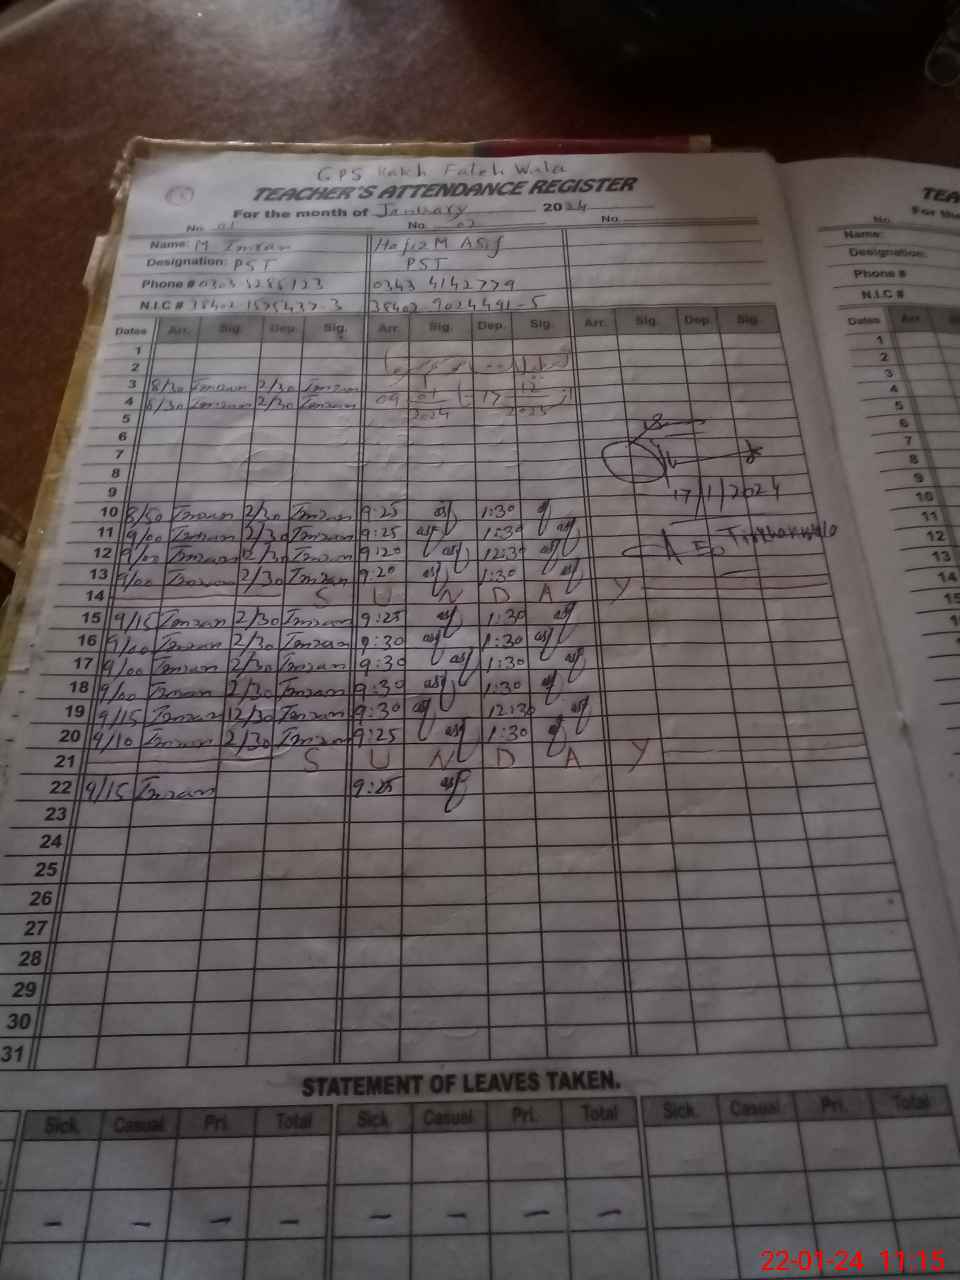 GPS Fateh Wala
TEACHER'S ATTENDANCE REGISTER
For the month of January 2024
No. 01 No. 02 No.
Name: M Imran Hafiz M Asif
Designation: PST PST
Phone # 0343 4142779
N.I.C #
Dates Arr. Sig. Dep. Sig. Arr. Sig. Dep. Sig. Arr. Sig. Dep. Sig.
1
2
3 8/30 Imran 2/30 Imran
4 8/30 Imran 2/30 Imran
5
6
7
8
9
17/1/2024
10 8/50 Imran 2/30 Imran 9:25 asif 1:30 asif
11 9/00 Imran 2/30 Imran 9:25 asif 1:30 asif
12 9/00 Imran 12/30 Imran 9:20 asif 12:30 asif
13 9/00 Imran 2/30 Imran 9:20 asif 1:30 asif
14 S U N D A Y
15 9/15 Imran 2/30 Imran 9:25 asif 1:30 asif
16 9/00 Imran 2/30 Imran 9:30 asif 1:30 asif
17 9/00 Imran 2/30 Imran 9:30 asif 1:30 asif
18 9/00 Imran 2/30 Imran 9:30 asif 1:30 asif
19 9/15 Imran 12/30 Imran 9:30 asif 12:30 asif
20 9/10 Imran 2/30 Imran 9:25 asif 1:30 asif
21 S U N D A Y
22 9/15 Imran 9:25 asif
23
24
25
26
27
28
29
30
31
STATEMENT OF LEAVES TAKEN.
Sick Casual Pri. Total Sick Casual Pri. Total Sick Casual Pri. Total
- - - - - - - -
TEA
No.
Name:
Designation:
Phone #
N.I.C.#
Dates Arr.
1
2
3
4
5
6
7
8
9
10
11
12
13
14
22-01-24 11:15